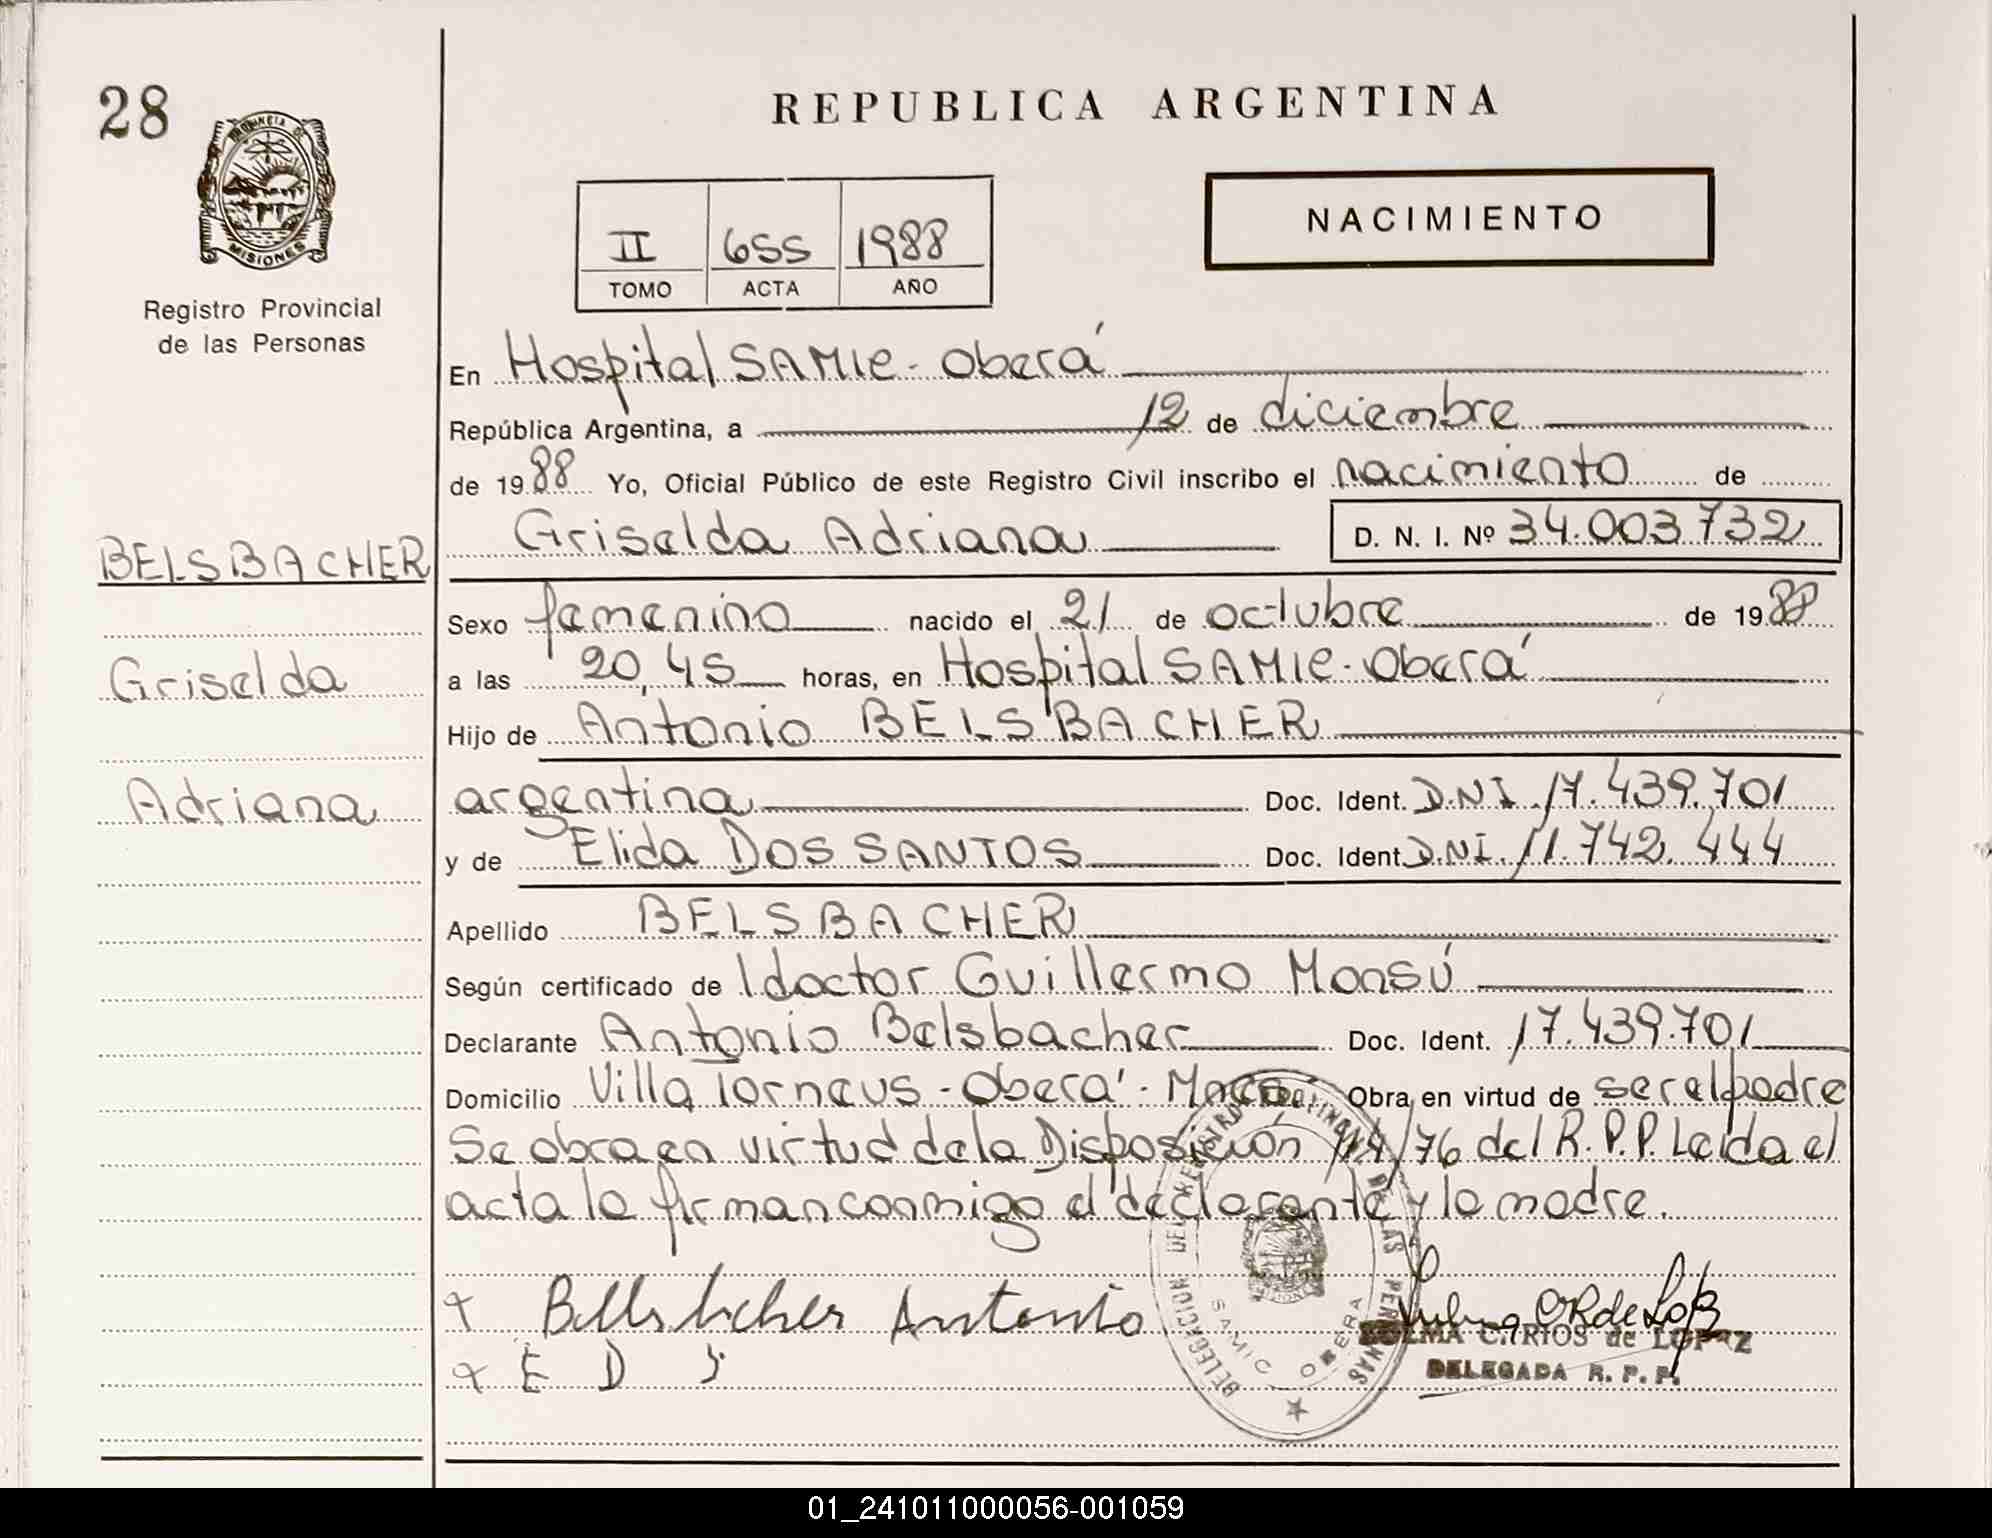 28
REPUBLICA ARGENTINA
PROVINCIA DE
MISIONES
Registro Provincial
de las Personas
II 655 1988
TOMO ACTA AÑO
NACIMIENTO
En Hospital SAMIC - Oberá
República Argentina, a 12 de diciembre
de 1988 Yo, Oficial Público de este Registro Civil inscribo el nacimiento de
Griselda Adriana D. N. I. Nº 34.003.732
BELSBACHER
Griselda
Adriana
Sexo femenino nacido el 21 de octubre de 1988
a las 20,45 horas, en Hospital SAMIC - Oberá
Hijo de Antonio BELSBACHER
argentina Doc. Ident. D.N.I. 17.439.701
y de Elida DOS SANTOS Doc. Ident D.N.I. 11.742.444
Apellido BELSBACHER
Según certificado de l doctor Guillermo Monsú
Declarante Antonio Belsbacher Doc. Ident. 17.439.701
Domicilio Villa Torneus - Oberá - Mnes. Obra en virtud de ser el padre
Se obra en virtud de la Disposición 114/76 del R.P.P. Leida el
acta la firman conmigo el declarante y la madre.
Belsbacher Antonio
E D S
DELEGACION DEL REGISTRO PROVINCIAL DE LAS PERSONAS
SAMIC OBERA
ZULMA C. RIOS de LOPEZ
DELEGADA R. P. P.
01_241011000056-001059